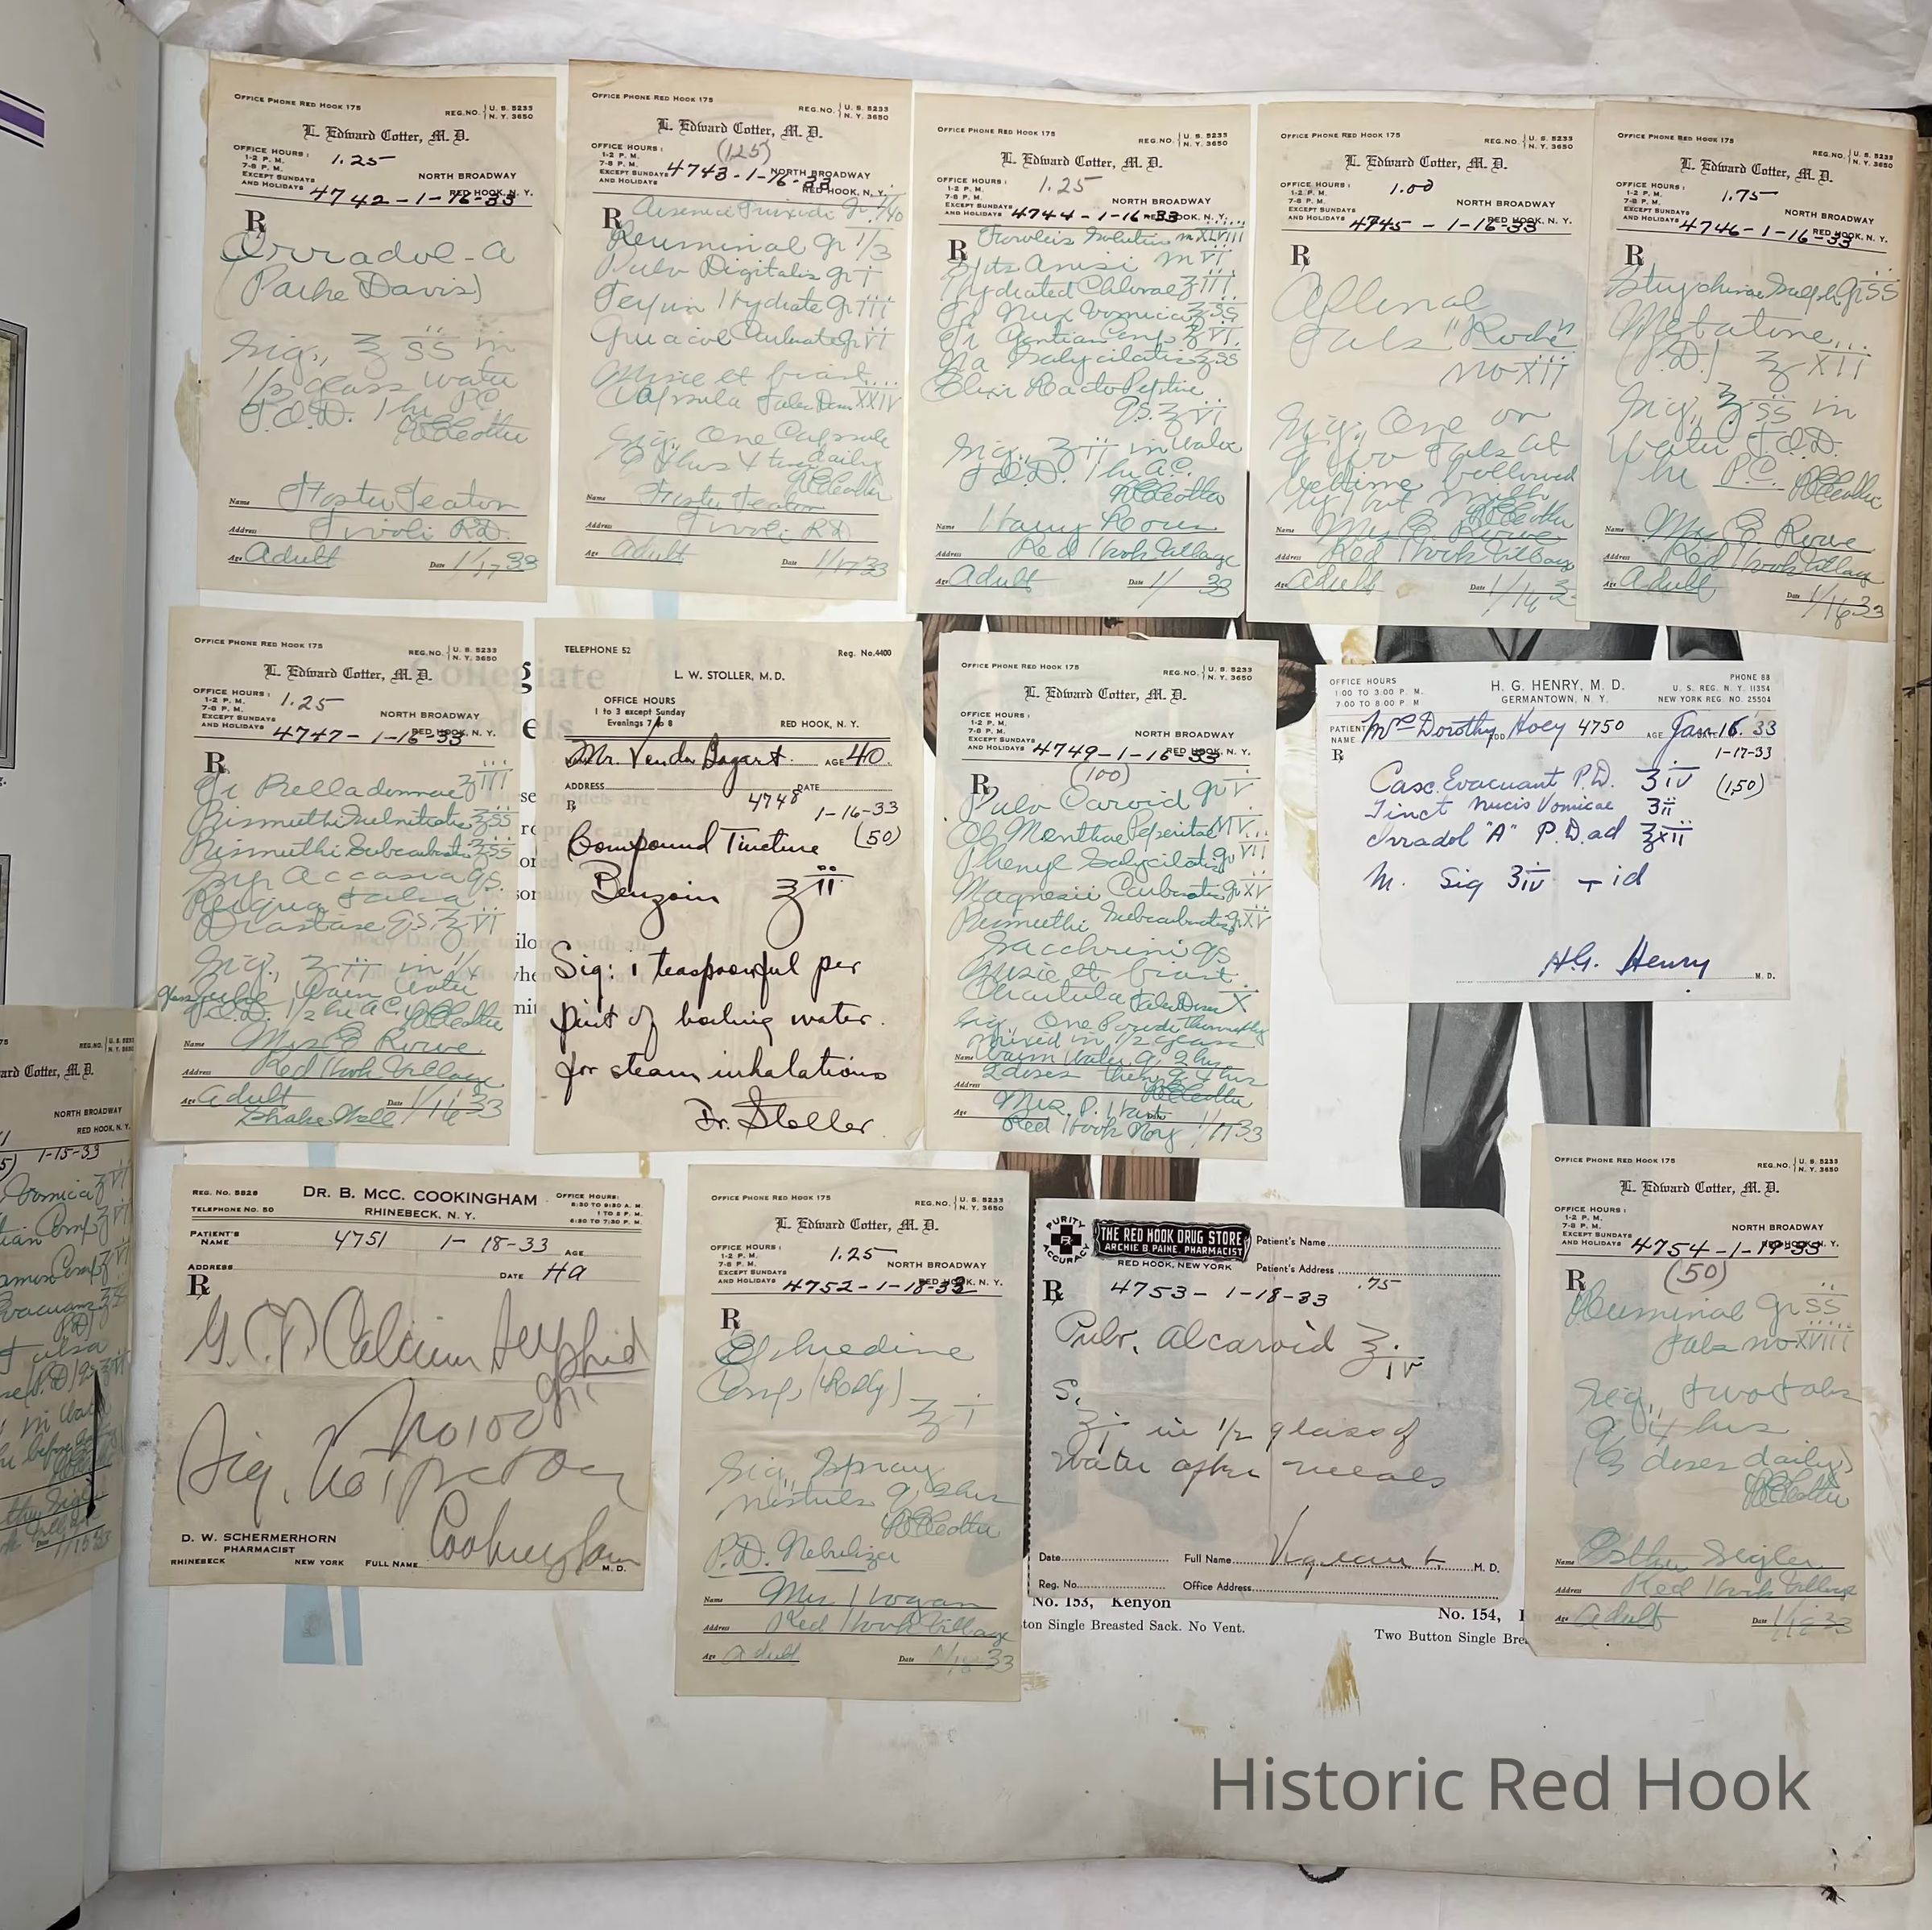 OFFICE PHONE RED HOOK 175
REG. NO. U. S. 5233
N. Y. 3650
L. Edward Cotter, M. D.
OFFICE HOURS:
1-2 P. M.
7-8 P. M.
EXCEPT SUNDAYS
AND HOLIDAYS
1.25
NORTH BROADWAY
RED HOOK, N. Y.
4742-1-16-33
R
Irradol-A
(Parke Davis)
Sig., ʒ ss in
1/3 glass water
T.I.D. 1 hr PC
Name Foster Teator
Address Tivoli RD.
Age Adult Date 1/17 33
OFFICE PHONE RED HOOK 175
REG. NO. U. S. 5233
N. Y. 3650
L. Edward Cotter, M. D.
(1.25)
1-2 P. M.
7-8 P. M.
EXCEPT SUNDAYS
AND HOLIDAYS
NORTH BROADWAY
RED HOOK, N. Y.
4743-1-16-33
R
Arsenic Trioxide Gr 1/40
Luminal gr 1/3
Pulv Digitalis gr i
Terpin Hydrate gr iii
Guacol Carbonate gr vi
Misce et fiant
Capsula tales Dos XXIV
Sig., One Capsule
4 hrs 4 times daily
Name Foster Teator
Address Tivoli RD
Age Adult Date 1/17 33
OFFICE PHONE RED HOOK 175
REG. NO. U. S. 5233
N. Y. 3650
L. Edward Cotter, M. D.
OFFICE HOURS:
1-2 P. M.
7-8 P. M.
EXCEPT SUNDAYS
AND HOLIDAYS
1.25
NORTH BROADWAY
RED HOOK, N. Y.
4744-1-16-33
R
Fowler's Solution m XLVIII
Anisi m vi
Hydrated Chloral ʒ iii
Tr Nux Vomica ʒ ss
Tr Gentian Comp ʒ VI
Na Salycilatis ʒ ss
Elixir Lacto Peptine
qs. ʒ vi
Sig., ʒ ii in Water
T.I.D. 1 hr A.C.
Name Harry
Address Red Hook Village
Age Adult Date 1/ 33
OFFICE PHONE RED HOOK 175
REG. NO. U. S. 5233
N. Y. 3650
L. Edward Cotter, M. D.
OFFICE HOURS:
1-2 P. M.
7-8 P. M.
EXCEPT SUNDAYS
AND HOLIDAYS
1.00
NORTH BROADWAY
RED HOOK, N. Y.
4745 - 1-16-33
R
Allonal
Tabs "Roche"
no XII
Sig., One or
two tabs at
bedtime followed
by hot milk
Name Mrs E. Rowe
Address Red Hook Village
Age Adult Date 1/16 33
OFFICE PHONE RED HOOK 175
REG. NO. U. S. 5233
N. Y. 3650
L. Edward Cotter, M. D.
OFFICE HOURS:
1-2 P. M.
7-8 P. M.
EXCEPT SUNDAYS
AND HOLIDAYS
1.75
NORTH BROADWAY
RED HOOK, N. Y.
4746-1-16-33
R
Strychinae Sulph gr ss
Metatone
(P.D.) ʒ XII
Sig., ʒ ss in
Water T.I.D.
1 hr P.C.
Name Mrs E Rowe
Address Red Hook Village
Age Adult Date 1/16 33
OFFICE PHONE RED HOOK 175
REG. NO. U. S. 5233
N. Y. 3650
L. Edward Cotter, M. D.
OFFICE HOURS:
1-2 P. M.
7-8 P. M.
EXCEPT SUNDAYS
AND HOLIDAYS
1.25
NORTH BROADWAY
RED HOOK, N. Y.
4747-1-16-33
R
Tr Belladonnae ʒ iii
Bismuthi Subnitrate ʒ ss
Bismuthi Subcarbonate ʒ ss
Syr Accasia qs.
Diastase qs. ʒ VI
Sig., ʒ ii in 1/4
glassful Warm Water
T.I.D. 1/2 hr A.C.
Name Mrs E Rowe
Address Red Hook Village
Age Adult Date 1/16 33
Shake Well
TELEPHONE 52
Reg. No. 4400
L. W. STOLLER, M.D.
OFFICE HOURS
1 to 3 except Sunday
Evenings 7 to 8
RED HOOK, N. Y.
Mr. Venda Bogart AGE 40.
ADDRESS DATE
4748 1-16-33
R
(50)
Compound Tincture
Benzoin ʒ ii
Sig: i teaspoonful per
pint of boiling water.
for steam inhalations
Dr. Stoller.
OFFICE PHONE RED HOOK 175
REG. NO. U. S. 5233
N. Y. 3650
L. Edward Cotter, M. D.
OFFICE HOURS:
1-2 P. M.
7-8 P. M.
EXCEPT SUNDAYS
AND HOLIDAYS
NORTH BROADWAY
RED HOOK, N. Y.
4749-1-16-33
(100)
R
Pulv Caroid gr V
Ol Menthae Peperitae M V
Phenyl Salycilatis gr VII
Magnesii Carbonate gr XV
Bismuthi Subcarbonate gr XV
Sacchrini qs
Misce et fiant
Chartula tales Doses X
Sig., One Powder thoroughly
mixed in 1/2 glass
Warm Water q. 2 hrs
2 doses then q 4 hrs
Name
Address
Age
Mrs. P. Hart
Red Hook 1/17 33
OFFICE HOURS
1:00 TO 3:00 P. M.
7:00 TO 8:00 P. M.
H. G. HENRY, M. D.
GERMANTOWN, N. Y.
PHONE 88
U. S. REG. N. Y. 11354
NEW YORK REG. NO. 25504
PATIENT NAME Mrs Dorothy Hoey 4750 AGE Jan 16. 33
1-17-33
R
Casc. Evacuant P.D. ʒ iv (1.50)
Tinct Nucis Vomicae ʒ ii
Irradol "A" P.D. ad ʒ xii
M. Sig ʒ iv T id
H.G. Henry M. D.
REG. NO. 5828
TELEPHONE NO. 50
DR. B. MCC. COOKINGHAM
RHINEBECK, N. Y.
OFFICE HOURS:
8:30 TO 9:30 A. M.
1 TO 2 P. M.
6:30 TO 7:30 P. M.
PATIENT'S NAME 4751 1-18-33 AGE
ADDRESS DATE
R
Calcium Sulphid
gr i
No 100
Sig.
Cookingham
D. W. SCHERMERHORN
PHARMACIST
RHINEBECK NEW YORK FULL NAME M. D.
OFFICE PHONE RED HOOK 175
REG. NO. U. S. 5233
N. Y. 3650
L. Edward Cotter, M. D.
OFFICE HOURS:
1-2 P. M.
7-8 P. M.
EXCEPT SUNDAYS
AND HOLIDAYS
1.25
NORTH BROADWAY
RED HOOK, N. Y.
4752-1-18-33
R
Ephredine
Comp (Lilly)
ʒ i
Sig., Spray
nostrils q. 2 hrs
P.D. Nebulizer
Name Mrs Hogan
Address Red Hook Village
Age Adult Date 1/18 33
PURITY
R
ACCURACY
THE RED HOOK DRUG STORE
ARCHIE B PAINE, PHARMACIST
RED HOOK, NEW YORK
Patient's Name
Patient's Address
R 4753- 1-18-33 .75
Pulv. Alcaroid ʒ iv
S.
ʒ i in 1/2 glass of
water after meals
Date Full Name M. D.
Reg. No. Office Address
No. 153, Kenyon
ton Single Breasted Sack. No Vent.
No. 154,
Two Button Single Bre
OFFICE PHONE RED HOOK 175
REG. NO. U. S. 5233
N. Y. 3650
L. Edward Cotter, M. D.
OFFICE HOURS:
1-2 P. M.
7-8 P. M.
EXCEPT SUNDAYS
AND HOLIDAYS
NORTH BROADWAY
RED HOOK, N. Y.
4754-1-19-33
(50)
R
Luminal gr ss
tabs no XVIII
Sig., two tabs
q. 4 hrs
(3 doses daily)
Name Esther Seigler
Address Red Hook Village
Age Adult Date 1/18 33
ard Cotter, M. D.
NORTH BROADWAY
RED HOOK, N. Y.
1-15-33
Historic Red Hook